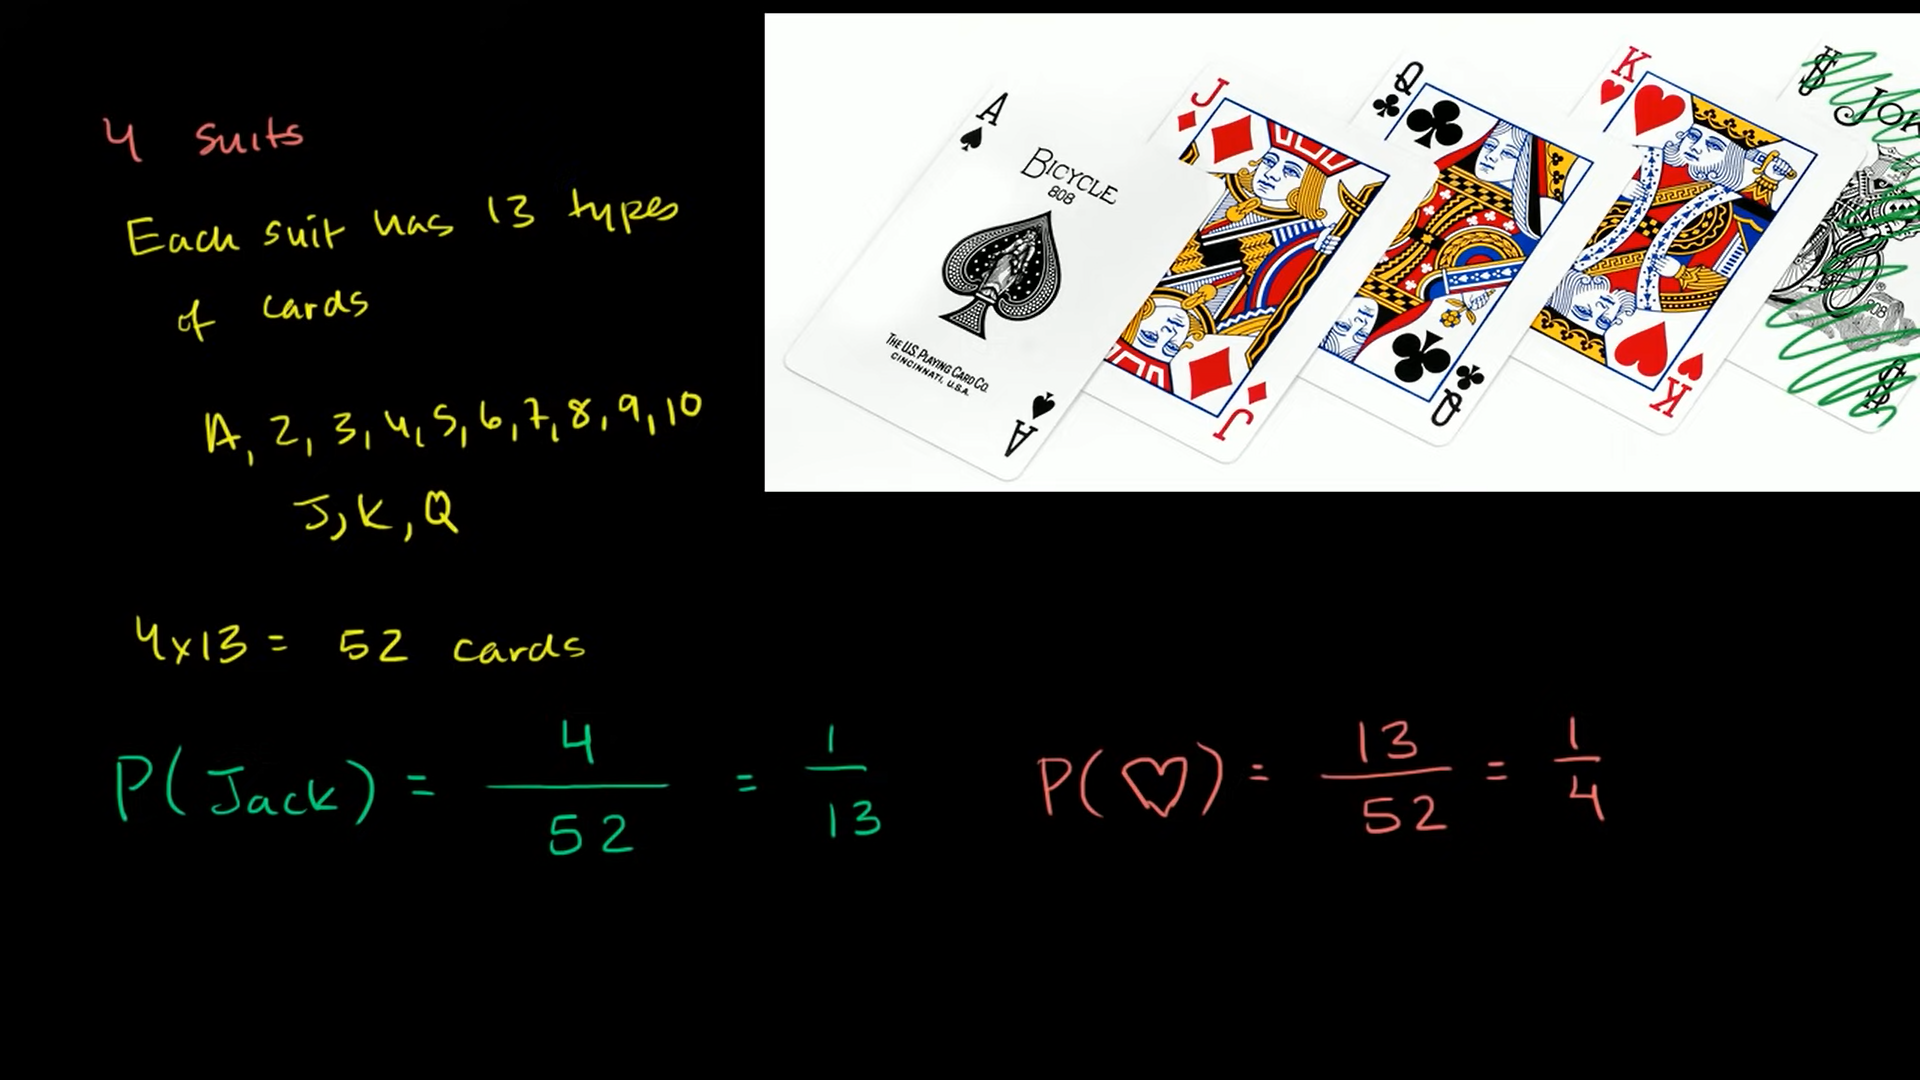 4 suits
Each suit has 13 types
of cards
A, 2, 3, 4, 5, 6, 7, 8, 9, 10
J, K, Q
4x13 = 52 cards
P(Jack) = 4/52 = 1/13
P(♡) = 13/52 = 1/4
A
BICYCLE
808
THE U.S. PLAYING CARD CO.
CINCINNATI, U.S.A.
A
J
J
Q
Q
K
K
JOK
808